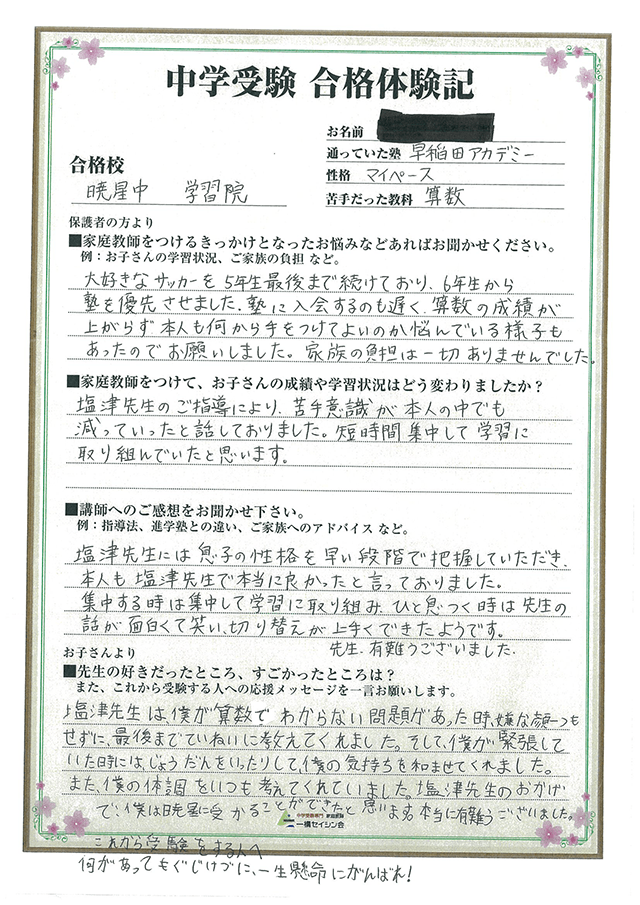 中学受験 合格体験記
お名前
通っていた塾 早稲田アカデミー
性格 マイペース
苦手だった教科 算数
合格校
暁星中 学習院
保護者の方より
■家庭教師をつけるきっかけとなったお悩みなどあればお聞かせください。
例：お子さんの学習状況、ご家族の負担 など。
大好きなサッカーを5年生最後まで続けており、6年生から
塾を優先させました。塾に入会するのも遅く、算数の成績が
上がらず本人も何から手をつけてよいのか悩んでいる様子も
あったのでお願いしました。家族の負担は一切ありませんでした。
■家庭教師をつけて、お子さんの成績や学習状況はどう変わりましたか？
塩津先生のご指導により、苦手意識が本人の中でも
減っていったと話しておりました。短時間集中して学習に
取り組んでいたと思います。
■講師へのご感想をお聞かせ下さい。
例：指導法、進学塾との違い、ご家族へのアドバイス など。
塩津先生には息子の性格を早い段階で把握していただき、
本人も塩津先生で本当に良かったと言っておりました。
集中する時は集中して学習に取り組み、ひと息つく時は先生の
話が面白くて笑い、切り替えが上手くできたようです。
先生、有難うございました。
お子さんより
■先生の好きだったところ、すごかったところは？
また、これから受験する人への応援メッセージを一言お願いします。
塩津先生は、僕が算数でわからない問題があった時、嫌な顔一つも
せずに、最後までていねいに教えてくれました。そして、僕が緊張して
いた時には、じょうだんをいったりして、僕の気持ちを和ませてくれました。
また、僕の体調をいつも考えてくれていました。塩津先生のおかげ
で、僕は暁星に受かることができたと思います。本当に有難うございました。
中学受験専門 家庭教師
一橋セイシン会
これから受験をする人へ
何があってもくじけづに、一生懸命にがんばれ！